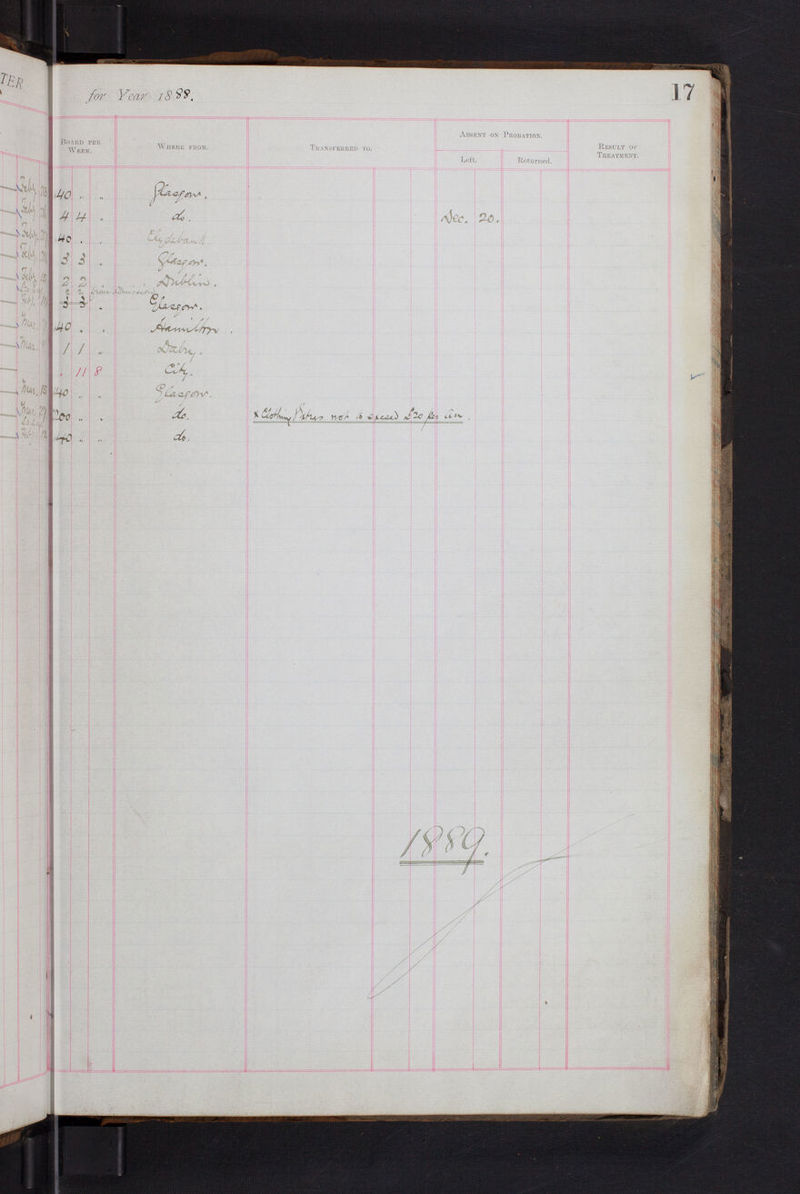 TER
for Year 1888.
17
BOARD PER WEEK.
WHERE FROM.
TRANSFERRED TO.
ABSENT ON PROBATION.
Left.
Returned.
RESULT OF TREATMENT.
40 . . Glasgow.
4 4 . do. Dec. 20.
40 . . Clydebank
3 3 . Glasgow.
2 2 . Dublin.
2 2 from admission
3 3 . Glasgow.
40 . . Hamilton.
1 1 . Dalry.
. 11 8 City.
40 . . Glasgow.
200 . . do. x Clothing Extras not to exceed £20 per ann.
40 . . do.
1889.